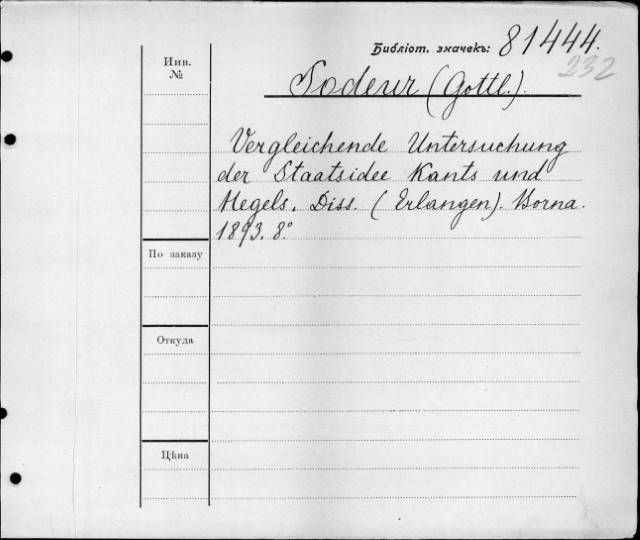 Библіот. значекъ: 81444.
232
Инв.
№
Sodeur (Gottl.).
Vergleichende Untersuchung
der Staatsidee Kants und
Hegels. Diss. (Erlangen). Borna.
1893. 8.°
По заказу
Откуда
Цѣна